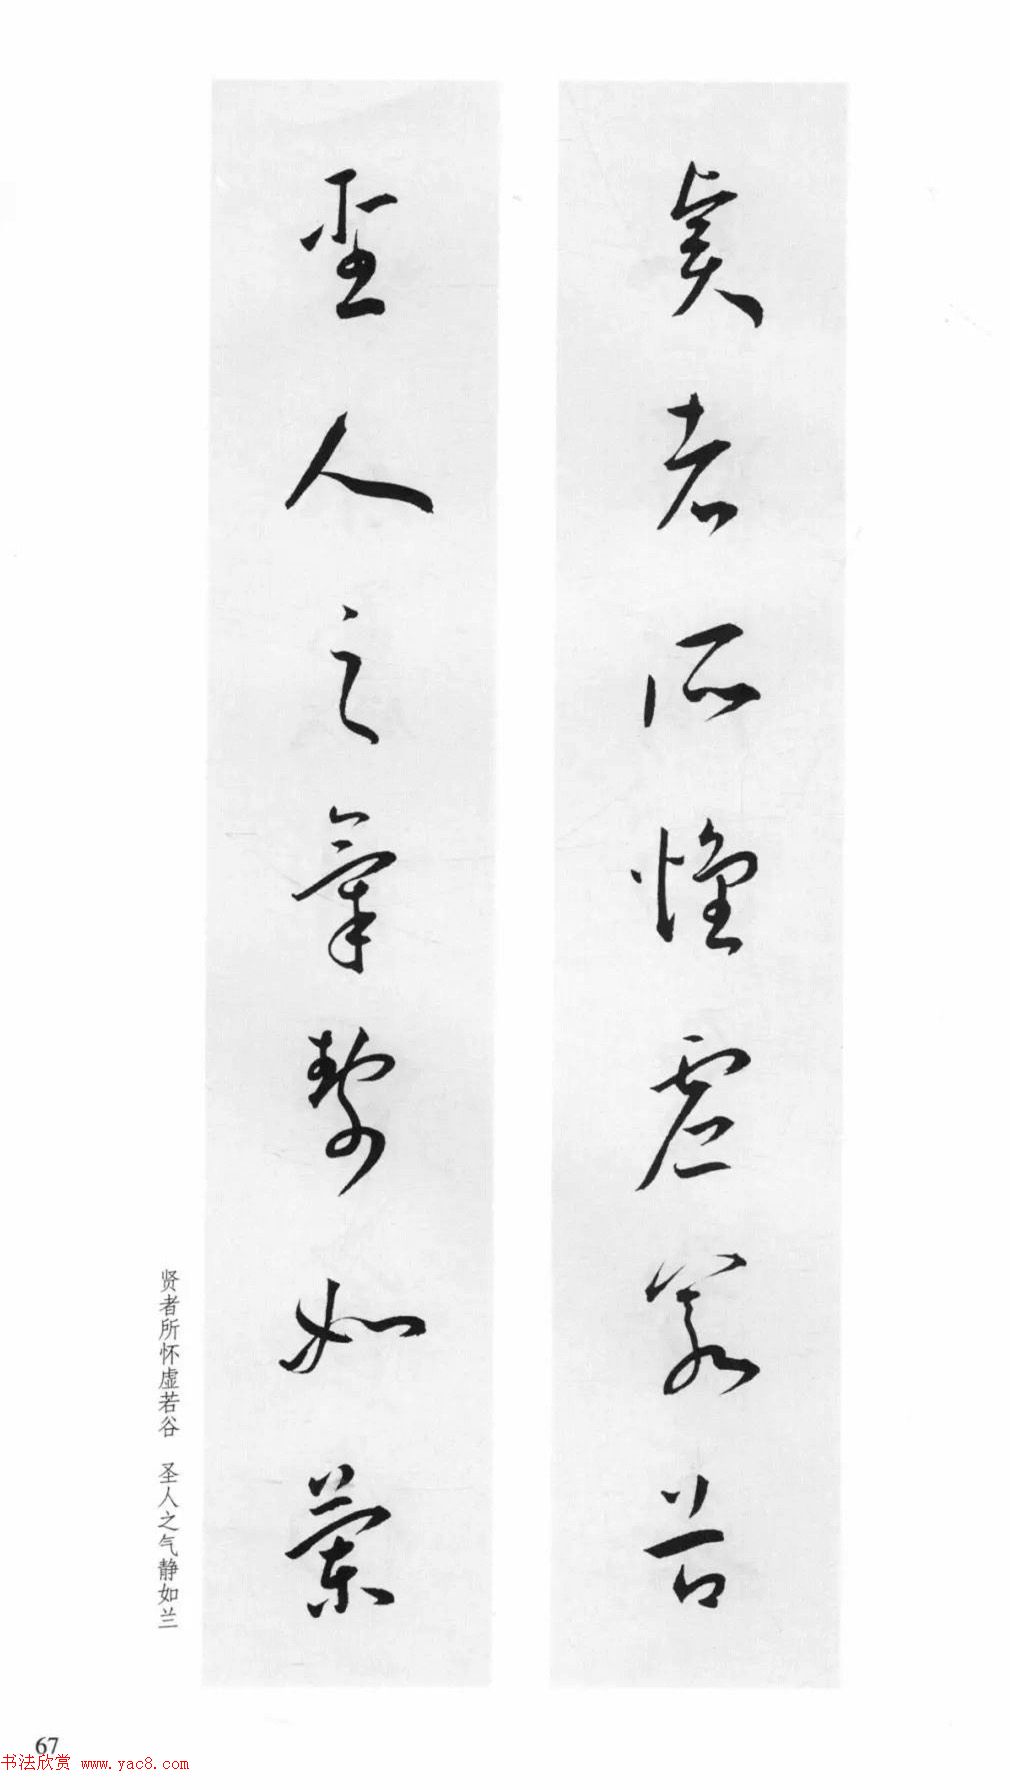 賢者所懷虛若谷
聖人之氣静如蘭
贤者所怀虚若谷 圣人之气静如兰
67
书法欣赏 www.yac8.com